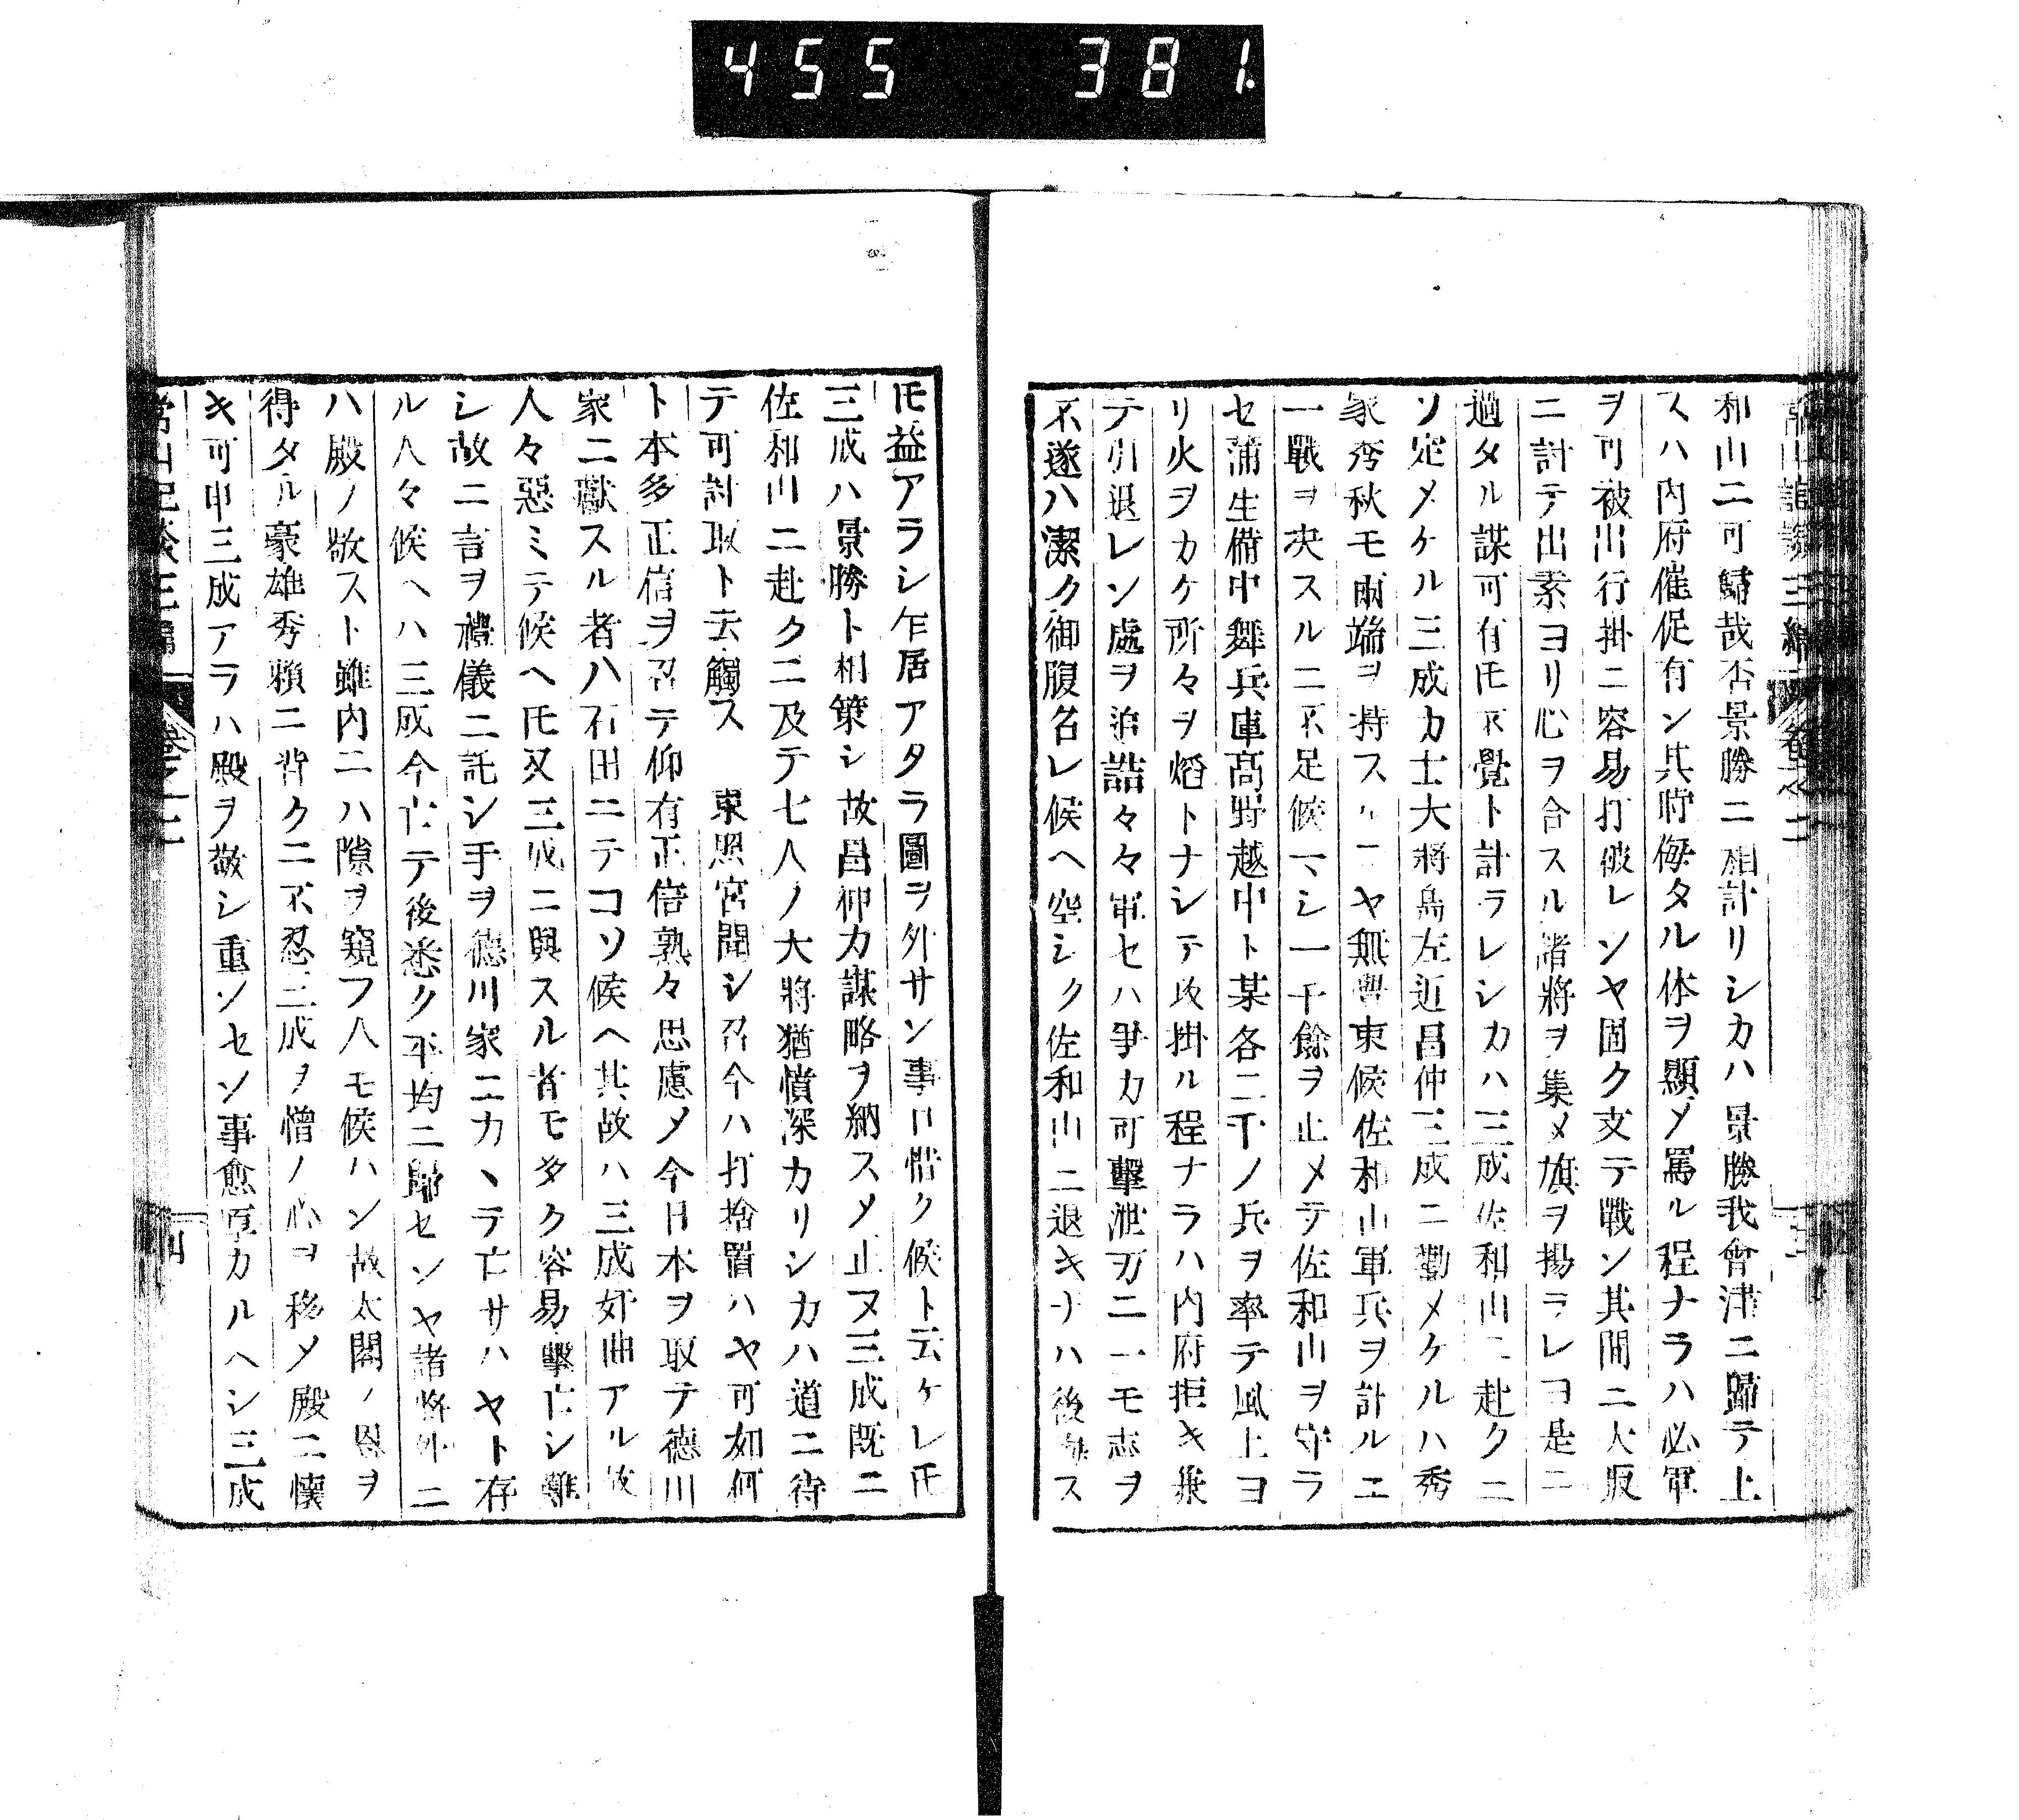 455 381.
和山ニ可歸哉否景勝ニ相計リシカハ景勝我會津ニ歸テ上
スハ内府催促有ン其時侮タル体ヲ顯〆罵ル程ナラハ必軍
ヲ可被出行掛ニ容易打破レンヤ固ク支テ戰ン其間ニ大坂
ニ計テ出素ヨリ心ヲ合スル諸將ヲ集メ旗ヲ揚ラレヨ是ニ
過タル謀可有𪜈不覺ト計ラレシカハ三成佐和山ニ赴クニ
ソ定メケル三成カ士大將島左近昌仲三成ニ勸メケルハ秀
家秀秋モ兩端ヲ持スルニヤ無覺束候佐和山軍兵ヲ計ルニ
一戰ヲ决スルニ不足候マシ一千餘ヲ止メテ佐和山ヲ守ラ
セ蒲生備中舞兵庫高野越中ト某各二千ノ兵ヲ率テ風上ヨ
リ火ヲカケ所々ヲ熖トナシテ攻掛ル程ナラハ内府拒キ兼
テ引退レン處ヲ追詰々々軍セハ爭カ可擊泄万二一モ志ヲ
不遂ハ潔ク御腹召レ候ヘ空シク佐和山ニ退キナハ後悔ス
𪜈益アラシ乍居アタラ圖ヲ外サン事口惜ク候ト云ケレ𪜈
三成ハ景勝ト相策シ故昌仲カ謀略ヲ納スメ止ヌ三成既ニ
佐和山ニ赴クニ及テ七人ノ大將猶憤深カリシカハ道ニ待
テ可討取ト云觸ス 東照宮聞シ召今ハ打捨置ハヤ可如何
ト本多正信ヲ召テ仰有正信熟々思慮〆今日本ヲ取テ德川
家ニ獻スル者ハ石田ニテコソ候ヘ其故ハ三成奸曲アル故
人々惡ミテ候ヘ𪜈又三成ニ與スル者モ多ク容易擊亡シ難
シ故ニ言ヲ禮儀ニ託シ手ヲ德川家ニカヽテ亡サハヤト存
ル人々候ヘハ三成今亡テ後悉ク平均ニ歸センヤ諸將外ニ
ハ殿ノ敬スト雖内ニハ隙ヲ窺フ人モ候ハン故太閤ノ恩ヲ
得タル豪雄秀賴ニ背クニ不忍三成ヲ憎ノ心ヲ移〆殿ニ懷
キ可申三成アラハ殿ヲ敬シ重ンセン事愈厚カルヘシ三成